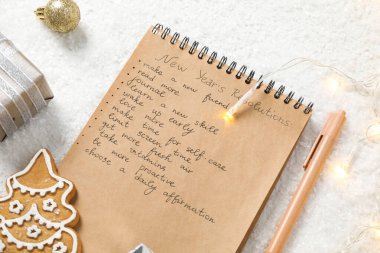 New Year's Resolutions:
• make a new friend
• read more
• journal
• learn a new skill
• wake up early
• love more
• make time for self-care
• limit screen time
• get more fresh air
• be mindful
• take more proactive
• choose a daily affirmation